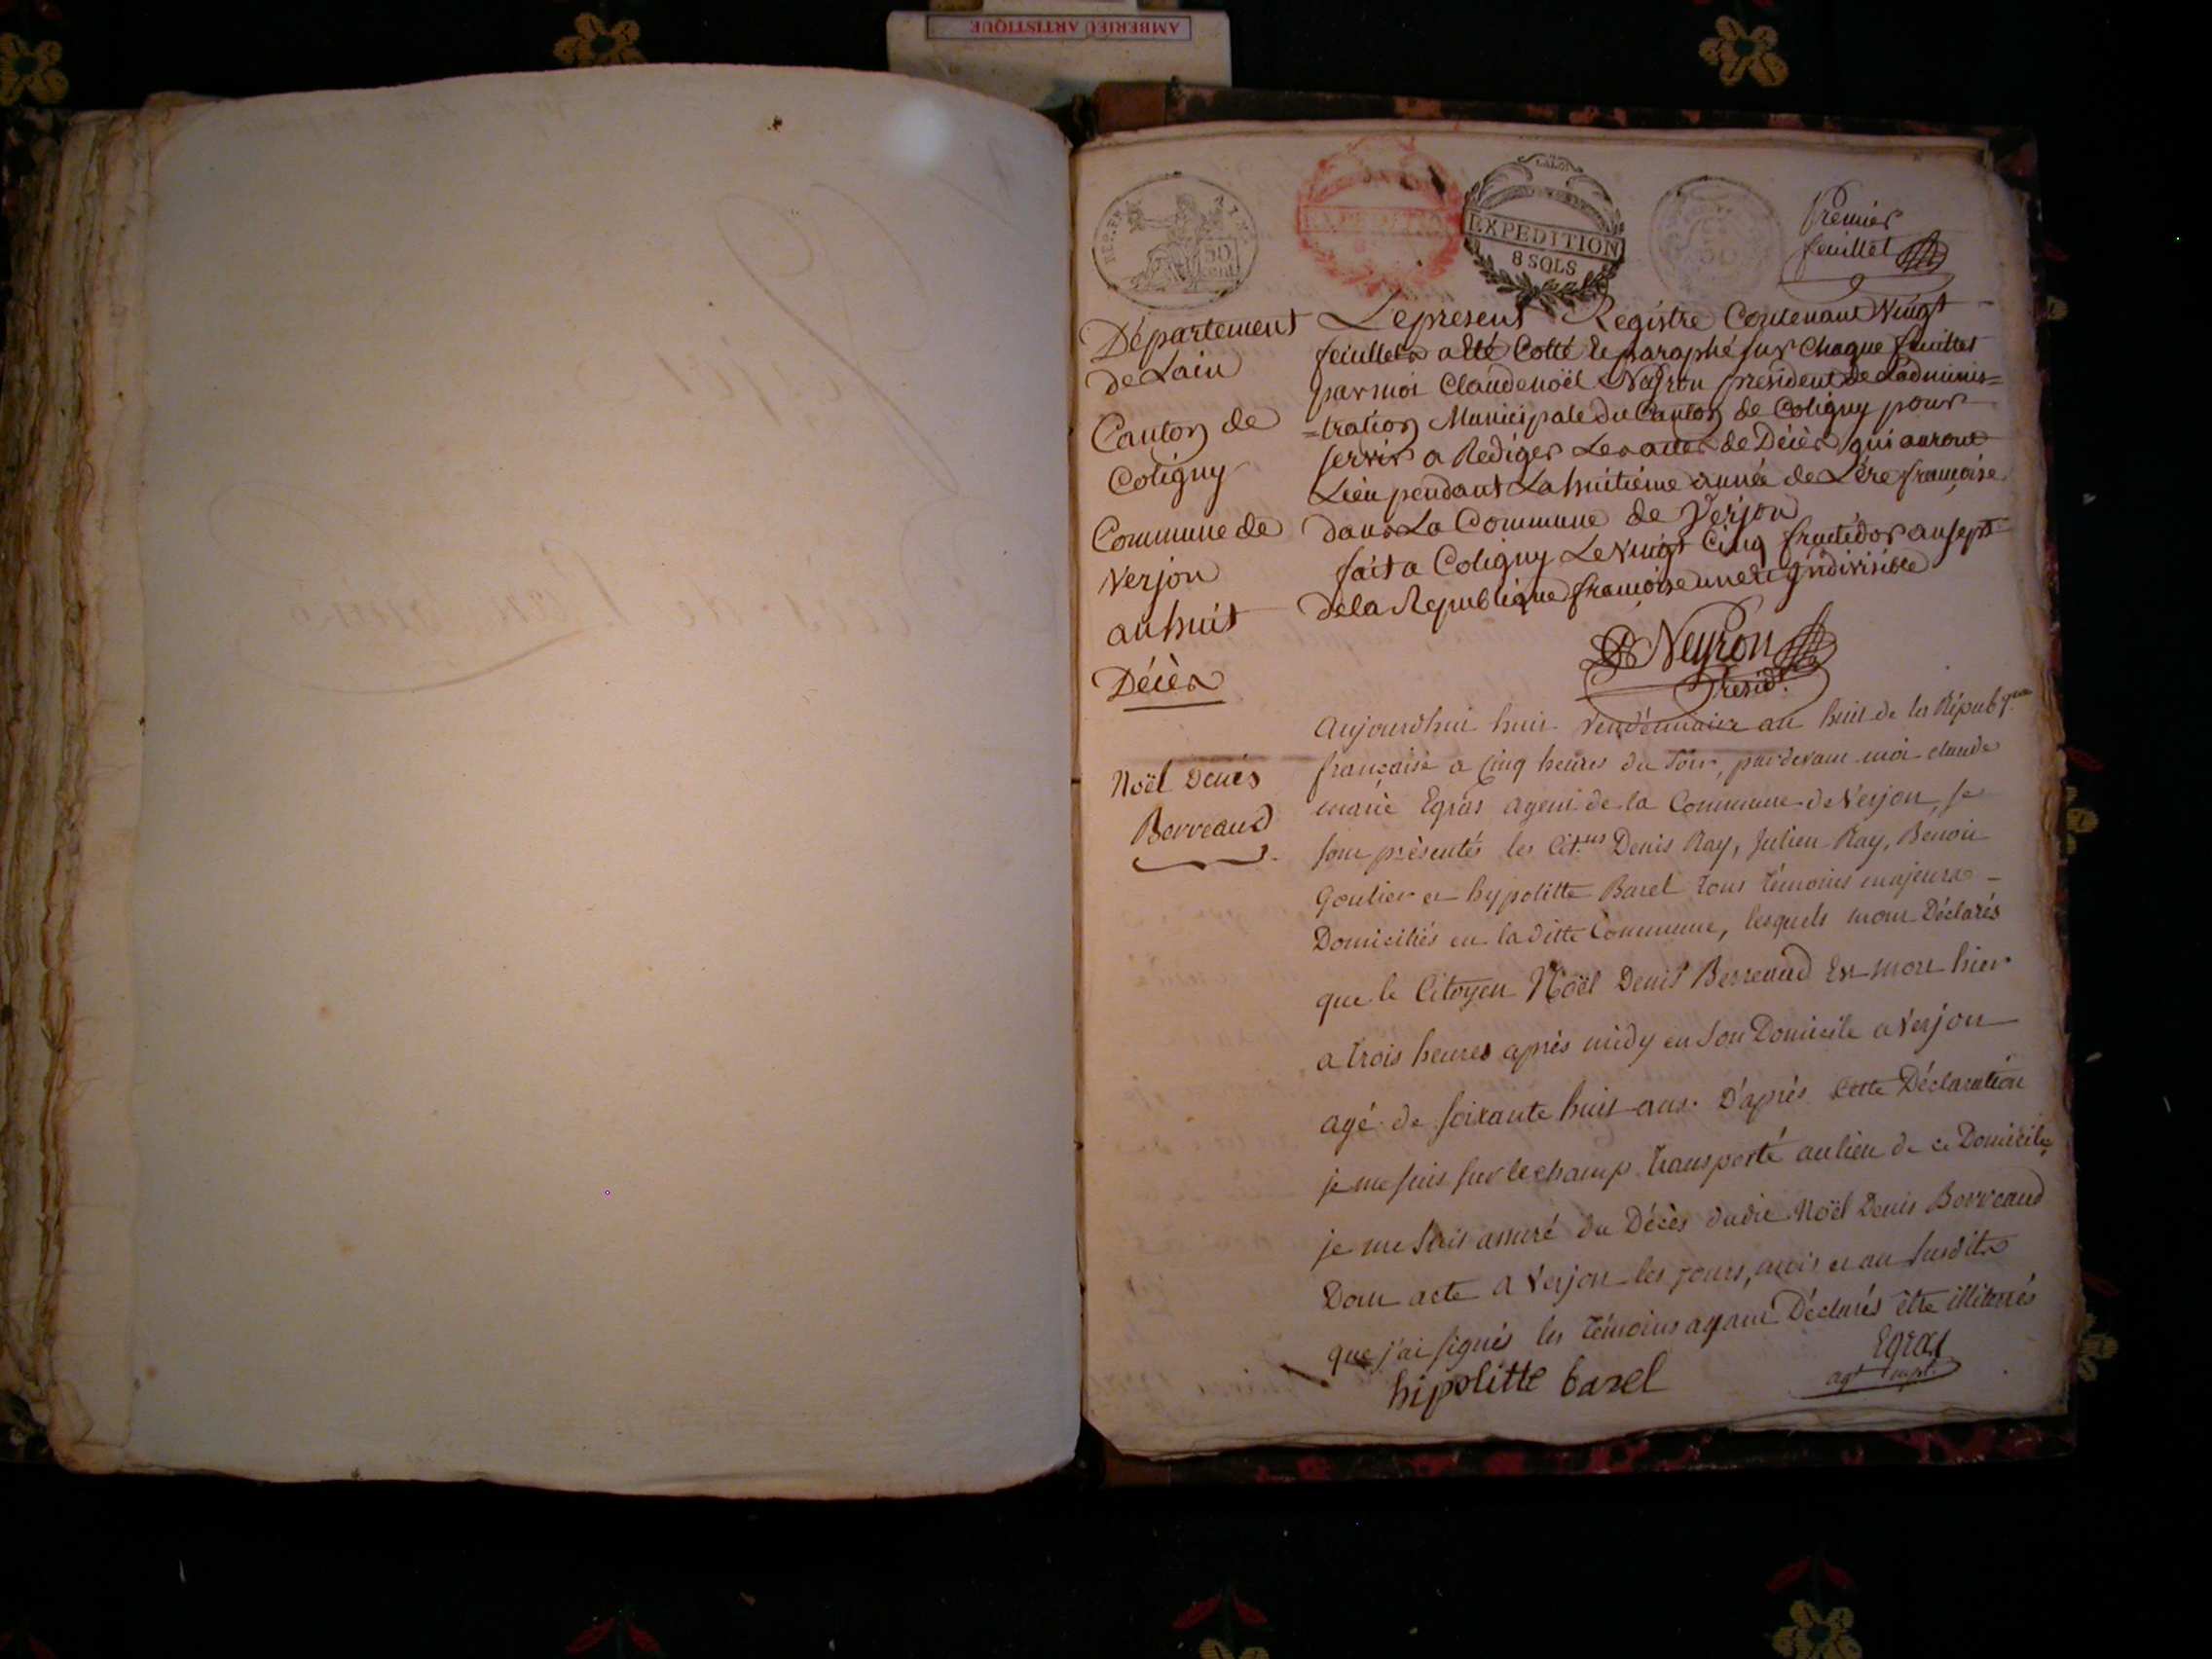 AMBERIEU ARTISTIQUE
REP. FRA
50
cent.
EXPEDITION
EXPEDITION
8 SOLS
Premier
feuillet
Département
de Lain
Canton de
Coligny
Commune de
Verjon
an huit
Décès
Le présent Registre Contenant Vingt
feuillets a été Cotté et paraphé sur Chaque feuillet
par moi Claude noël Neyron président de Ladminis=
=tration Municipale du Canton de Coligny pour
servir a Rediger Les actes de Décès qui auront
Lieu pendant La huitième année de Lère françoise
dans La Commune de Verjon
fait a Coligny Le Vingt Cinq fructidor an sept
de la Republique françoise une et indivisible
Neyron
Présidt.
Noël Denis
Borreaud
Aujourdhui huit Vendémiaire an huit de la Républque
française a Cinq heures du Soir, pardevant moi claude
marie Egras agent de la Commune de Verjon, se
sont présentés les Cit.ns Denis Ray, Julien Ray, Benoit
Goutier et hypolitte Barel tous témoins majeurs
Domiciliés en la ditte Commune, lesquels mont Déclarés
que le Citoyen Noël Denis Borreaud Est mort hier
a trois heures après midy en Son Domicile a Verjon
agé de soixante huit ans. D'après Cette Déclaration
je me suis sur le champ transporté au lieu de ce Domicile,
je me Suis assuré du Décès dudit Noël Denis Borreaud
Dont acte a Verjon les jours, mois et an Susdits
que j'ai signés les témoins ayant Déclarés être illiterrés
hipolitte barel
Egras
agt mpl.